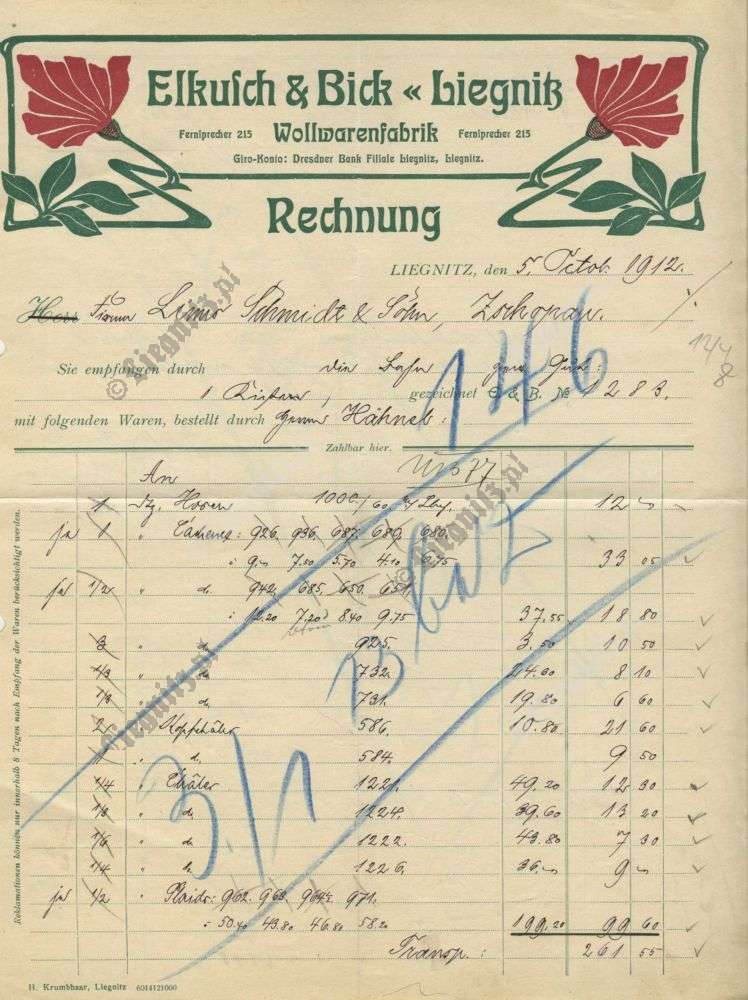 Elkusch & Bick « Liegnitz
Fernsprecher 215 Wollwarenfabrik Fernsprecher 215
Giro-Konto: Dresdner Bank Filiale Liegnitz, Liegnitz.
Rechnung
LIEGNITZ, den 5. Octob. 1912.
Herrn Firma Schmidt & Sohn, Zschopau.
Sie empfangen durch die Bahn Gut:
1 gezeichnet E. & B. № 1283.
mit folgenden Waren, bestellt durch Herrn Hähnel:
146
Zahlbar hier.
An
1 Dtz. Hosen 1000/60 12 "
ja 1 " 926. 936. 687. 689. 680.
à 9 " 7.50 5.70 4.10 6.75 33 05
je 1/2 " do. 942. 685. 650. 651.
à 12.20 7.20 8.40 9.75 37.55 18 80
3 " do. 925. 3.50 10 50
1/3 " do. 732. 24.60 8 10
1/3 " do. 731. 19.80 6 60
2 " Kopfshäler 586. 10.80 21 60
1 " do. 584. 9 50
1/4 " Shäler 1221. 49.20 12 30
1/3 " do. 1224. 39.60 13 20
1/6 " do. 1222. 43.80 7 30
1/4 " do. 1226. 36 " 9 "
je 1/2 " Plaids: 962. 963. 964. 971.
à 50.40 43.80 46.80 58.20 199.20 99 60
Transp.: 261 55
Reklamationen können nur innerhalb 8 Tagen nach Empfang der Waren berücksichtigt werden.
H. Krumbhaar, Liegnitz 6014121000
© Liegnitz.pl
© Liegnitz.pl
Liegnitz.pl